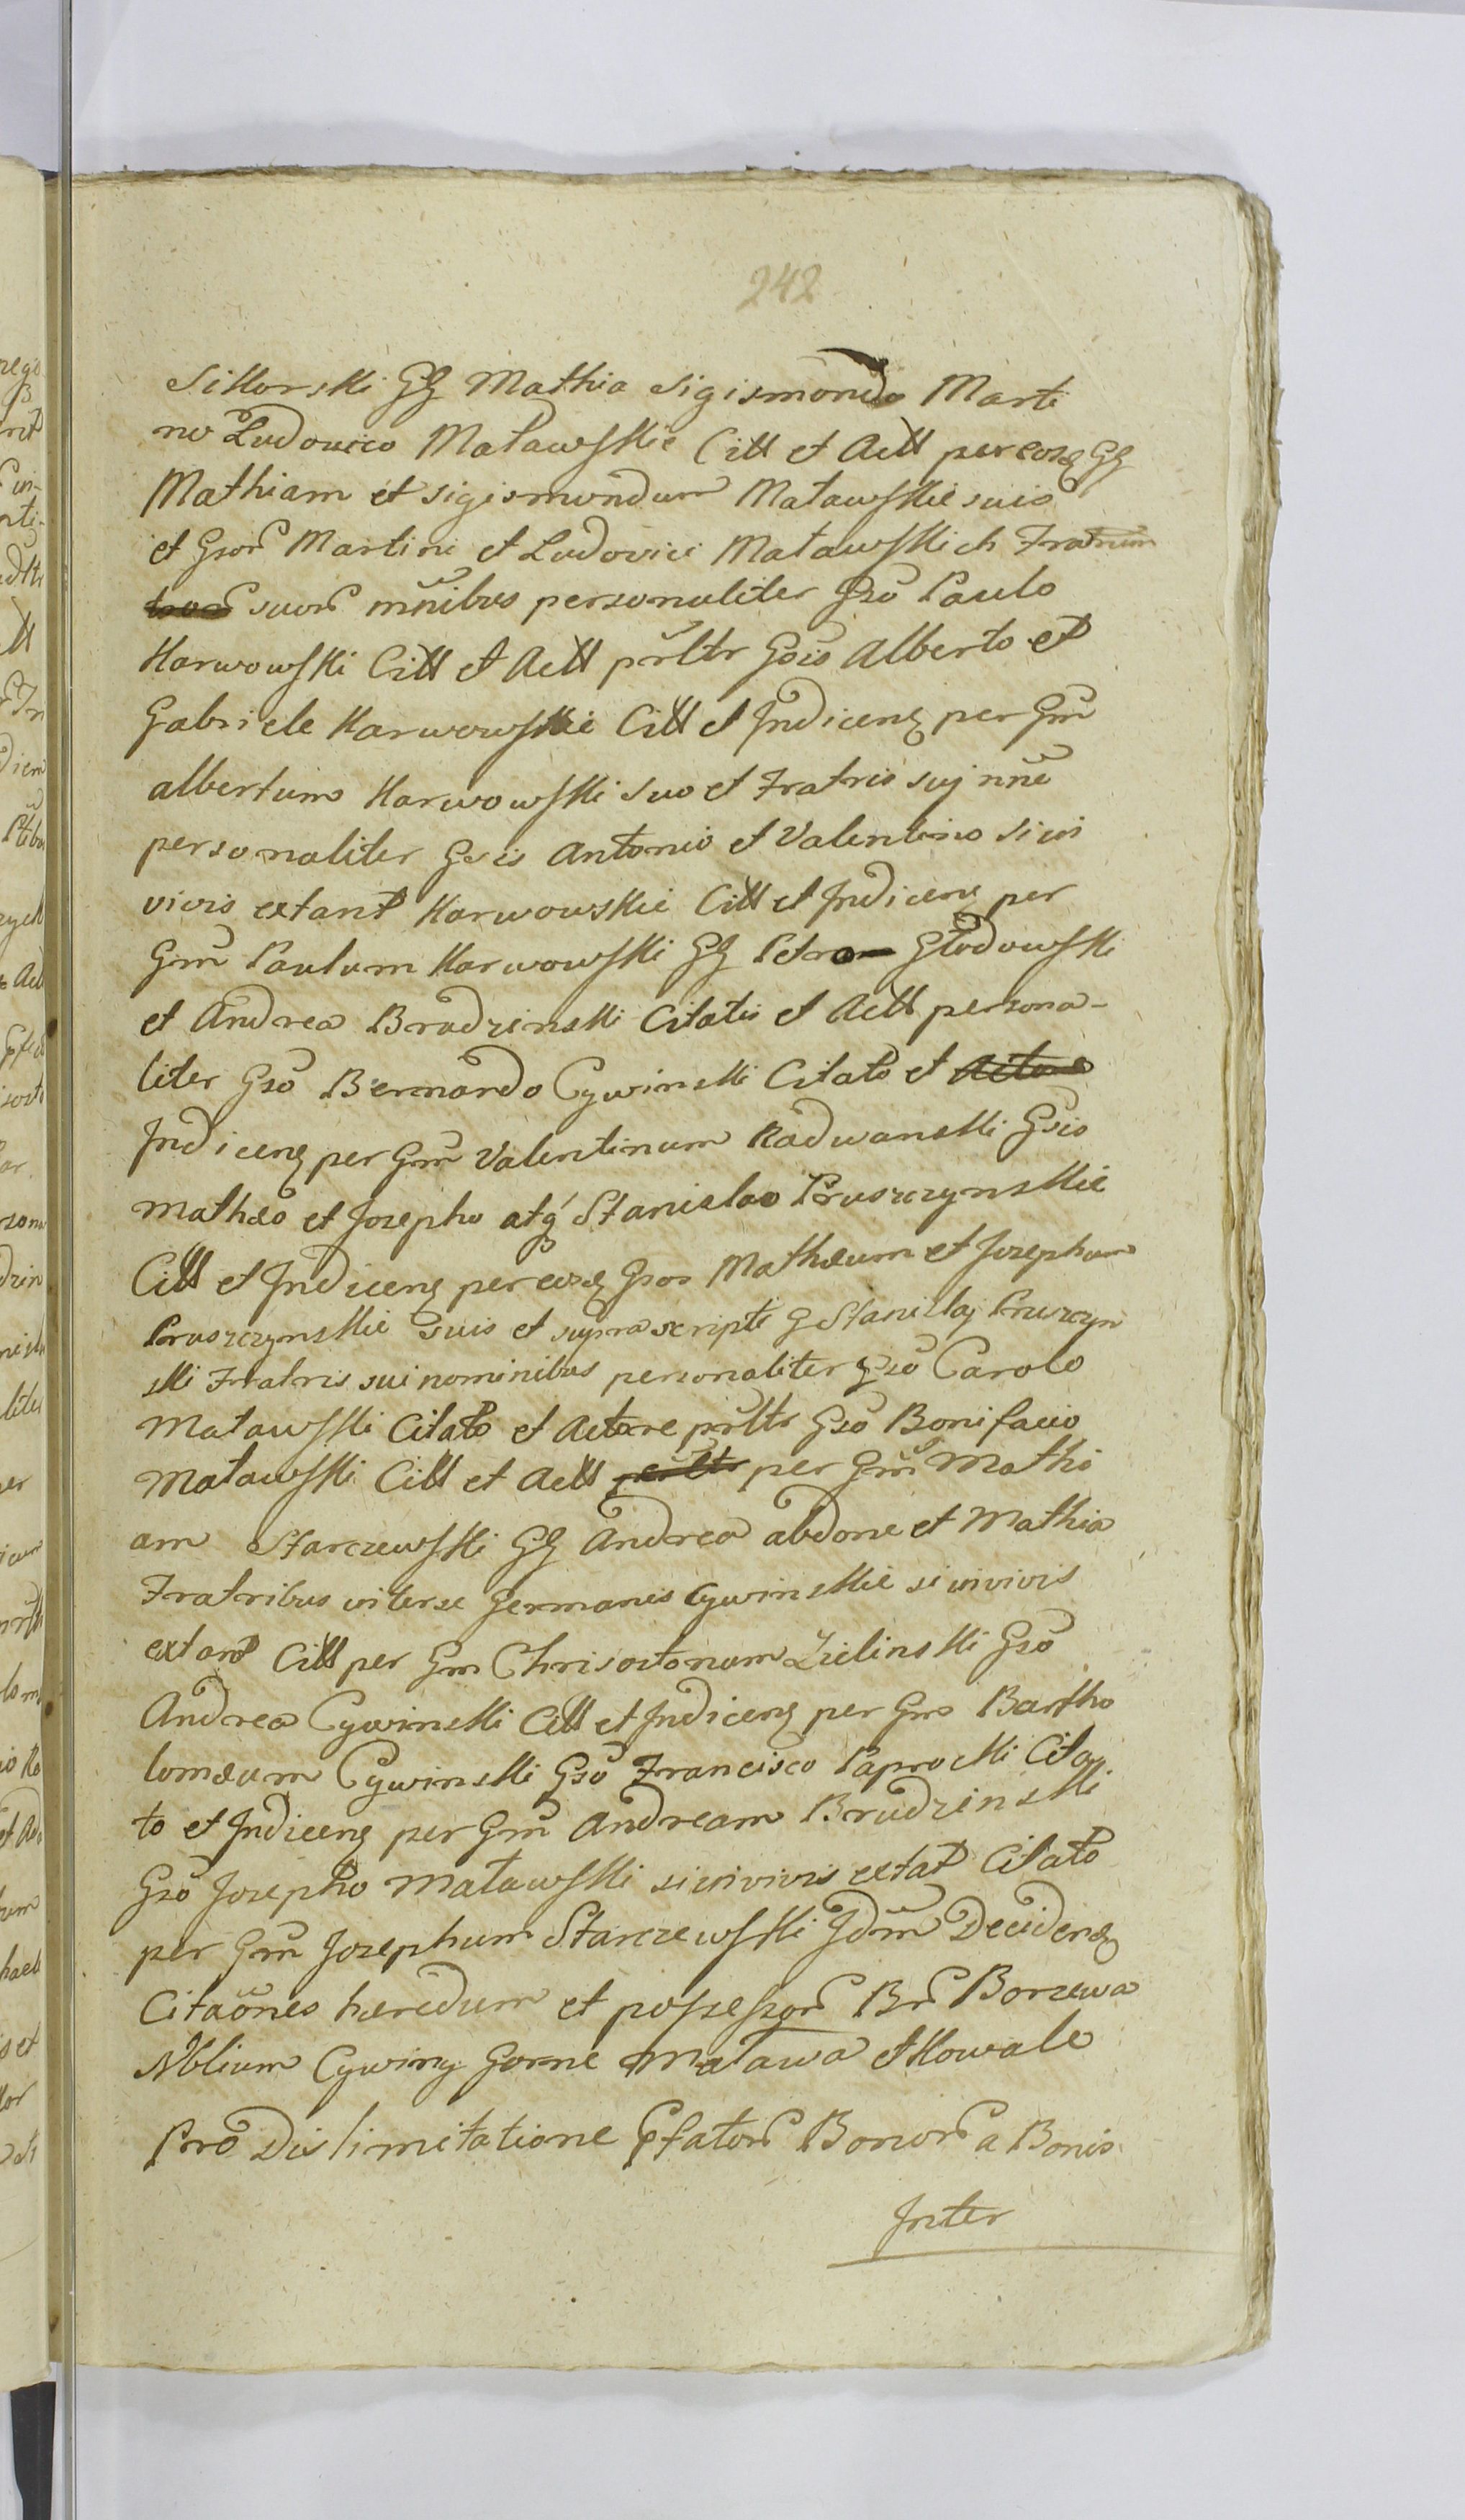 242
Sikorski GG Mathia Sigismondo Marti
no Ludovico Małowskie Citt et Actt per eosq GG
Mathiam et Sigismundum Małowskie suis
et Gsor Martini et Ludovici Małowskich Fratrum
suor mnibus personaliter Gso Paulo
Karwowski Citt et Actt prltr Gsis Alberto et
Gabriele Karwowskie Citt et Indiceng per Gm
Albertum Karwowski suo et Fratris suj nne
personaliter Gsis Antonio et Valentino si in
vivis extant Karwowskie Citt et Indiceng per
Gm Paulum Karwowski GG Petro Głodowski
et Andrea Brudzinski Citatis et Actt persona-
liter Gso Bernardo Cywinski Citato et Actore
Indiceng per Gm Valentinum Radwanski Gsis
Mathæo et Josepho atq Stanislao Pruszczynskie
Citt et Indiceng per eosq Gsos Mathæum et Josephum
Pruszczynskie suis et supra scripti G Stanislaj Pruszczyn
ski Fratris sui nominibus personaliter Gso Carolo
Małowski Citato et Actore prltr Gso Bonifacio
Małowski Citt et Actt prltr per Gm Mathi
am Starczewski GG Andrea Abdone et Mathia
Fratribus interse Germanis Cywinskie si in vivis
extant Citt per Gm Chrisostomum Zielinski Gso
Andrea Cywinski Citt et Indiceng per Gm Bartho
lomæum Cywinski Gso Francisco Paprocki Cita
to et Indiceng per Gm Andream Brudzinski
Gso Josepho Małowski si in vivis extat Citato
per Gm Josephum Starczewski Jdm Decideng
Citaones hæredum et possessor Br Borzewa
Nblium Cywiny Gorne Małowa et Kowale
Pro Dislimitatione Pfator Bonor a Bonis
Inter